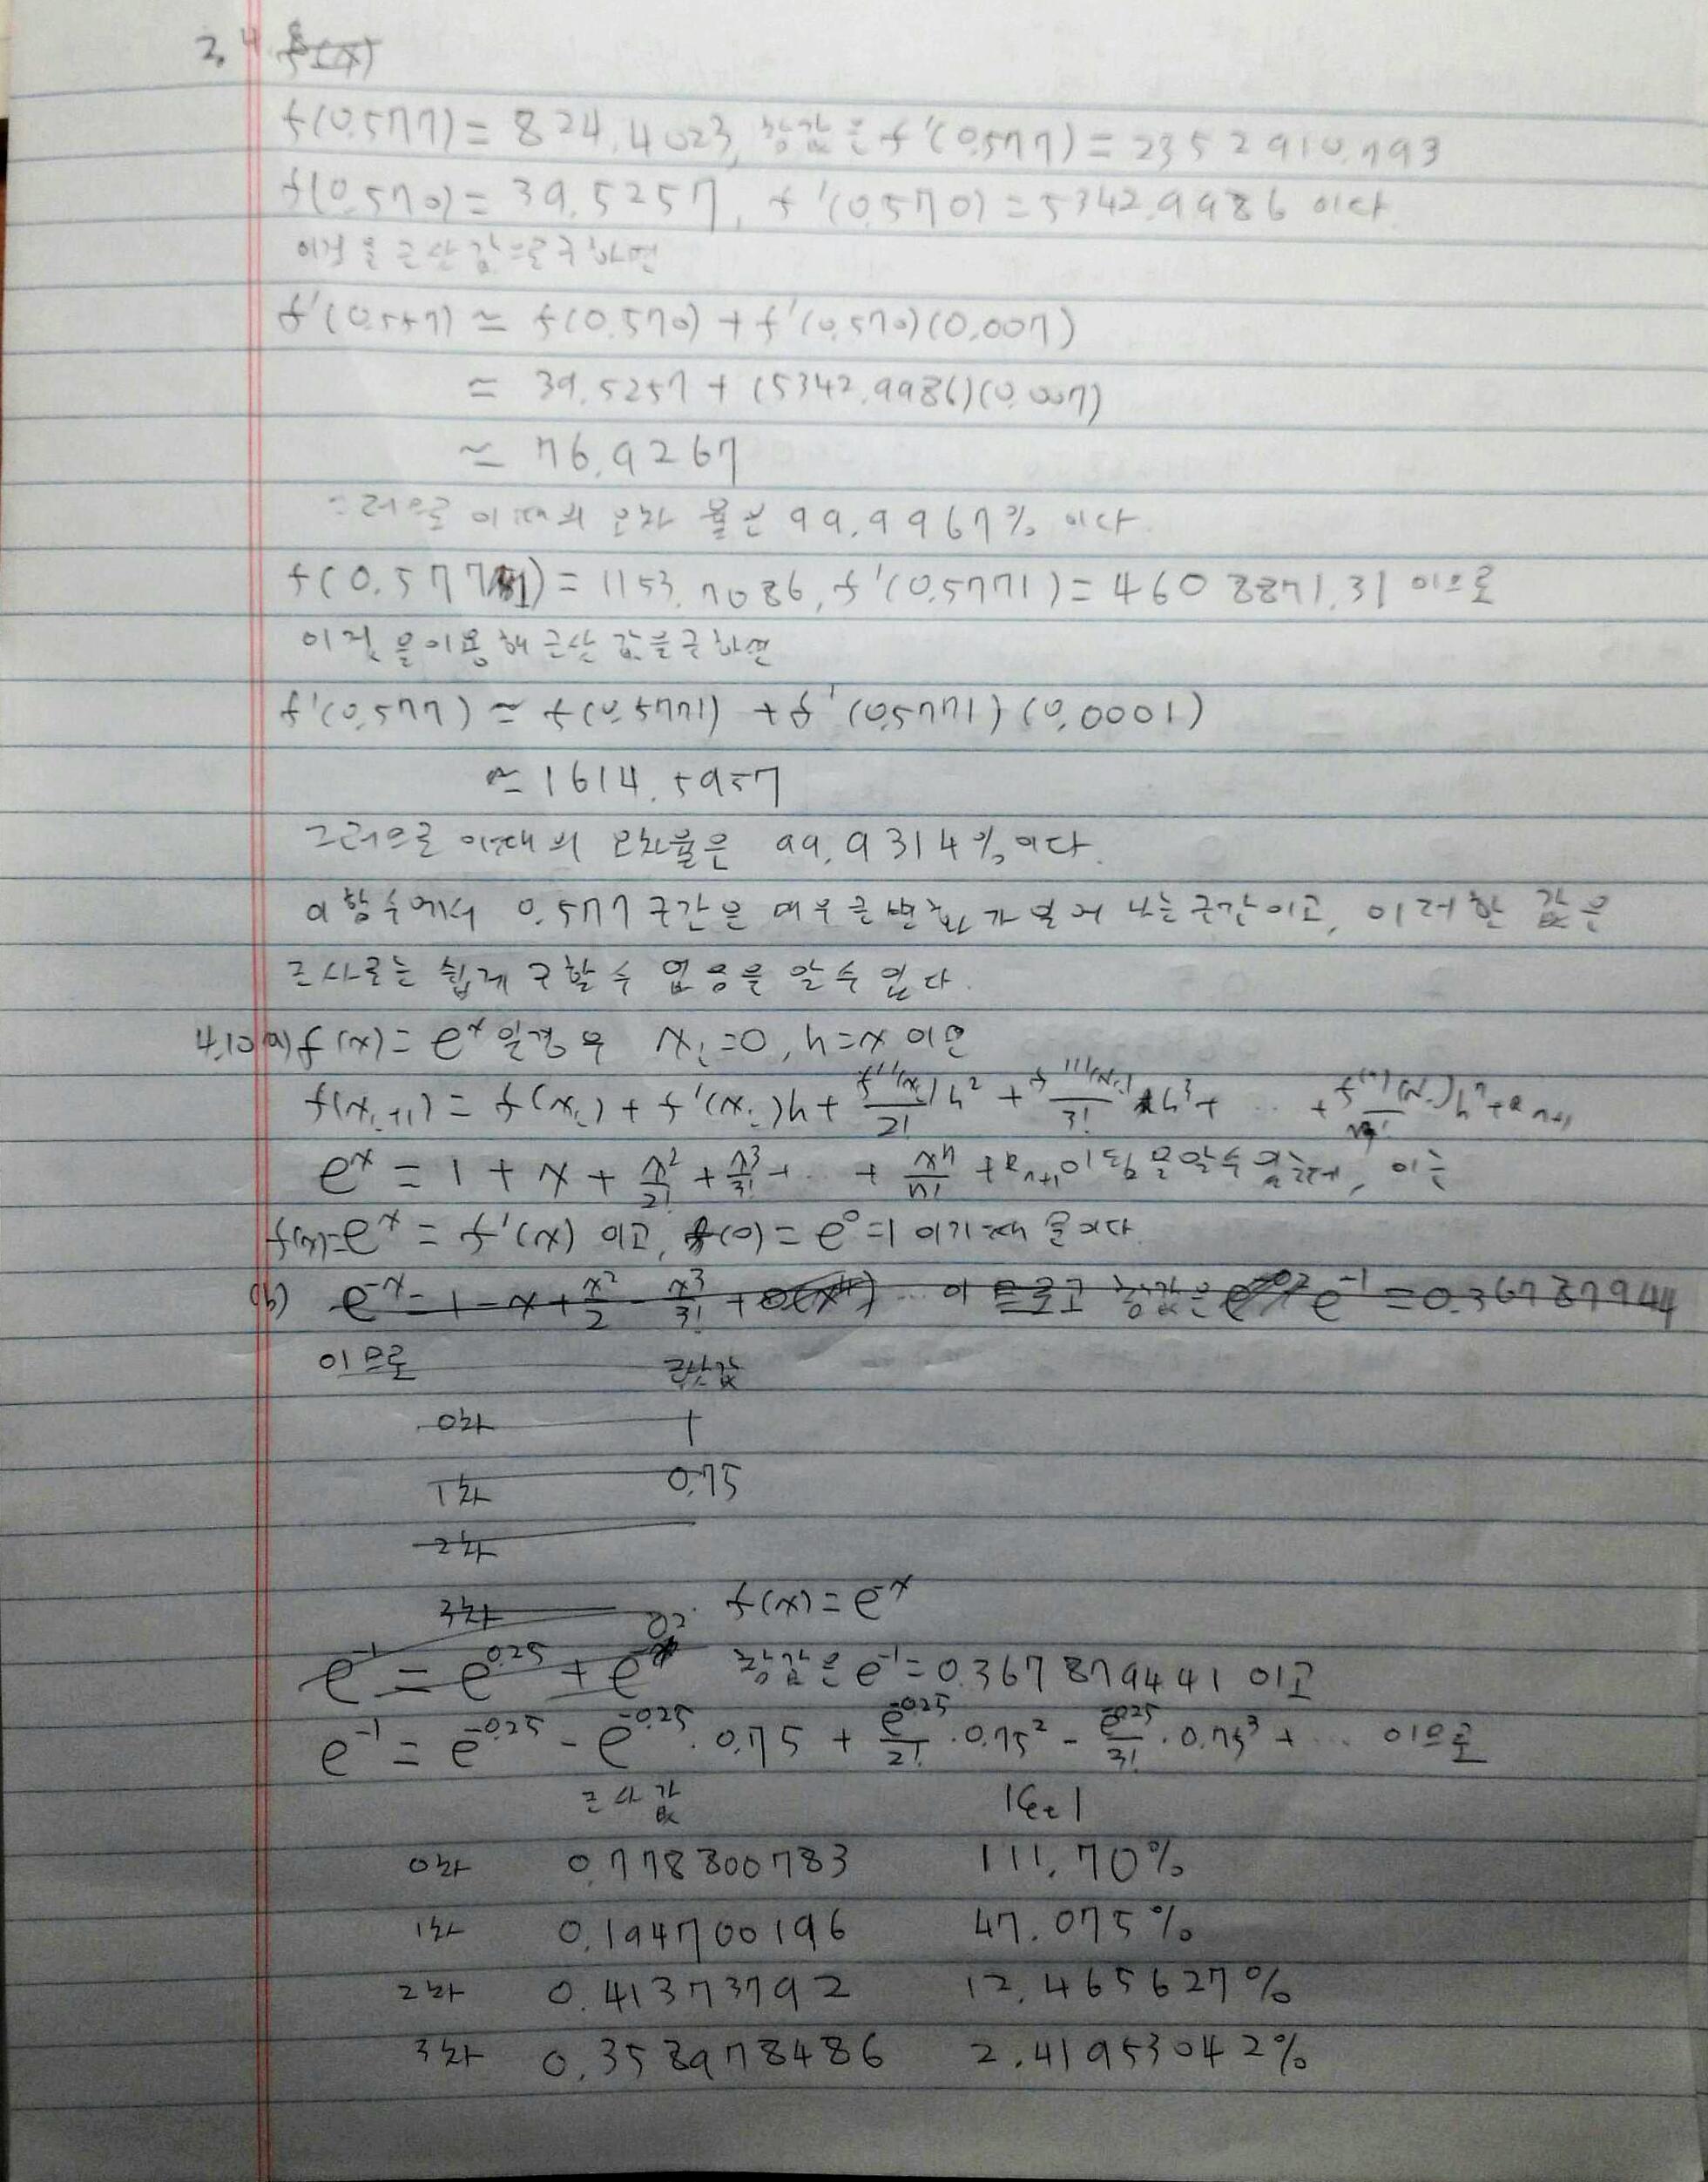 2,4 f(x)
f(0.577) = 824.4023, 참값은 f'(0.577) = 2352910.793
f(0.570) = 39.5257, f'(0.570) = 5342.9986 이다
이것을 근사값으로 구하면
f'(0.577) ≃ f(0.570) + f'(0.570)(0.007)
≃ 39.5257 + (5342.9986)(0.007)
≃ 76.9267
그러므로 이때의 오차율은 99.9967% 이다.
f(0.5771) = 1153.7086, f'(0.5771) = 4608871.31 이므로
이것을 이용해 근사값을 구하면
f'(0.577) ≃ f(0.5771) + f'(0.5771)(0.0001)
≃ 1614.5957
그러므로 이때의 오차율은 99.9314%이다.
이 함수에서 0.577 구간은 매우 큰 변화가 일어나는 구간이고, 이러한 값은
근사로는 쉽게 구할 수 없음을 알 수 있다.
4.10 (a) f(x) = e^x 일 경우 x_i = 0, h = x 이면
f(x_{i+1}) = f(x_i) + f'(x_i)h + f''(x_i)/2! h² + f'''(x_i)/3! h³ + ... + f^(n)(x_i)/n! h^n + R_{n+1}
e^x = 1 + x + x²/2! + x³/3! + ... + x^n/n! + R_{n+1} 이 됨을 알 수 있는데, 이는
f(x) = e^x = f'(x) 이고, f(0) = e⁰ = 1 이기 때문이다.
(b) e^-x = 1 - x + x²/2 - x³/3! + ... 이므로고 참값은 e^-1 = 0.36787944
이므로 근사값
0차 1
1차 0.75
2차
3차 f(x) = e^-x
e^-1 = e^0.25 + 참값은 e^-1 = 0.3678794441 이고
e^-1 = e^-0.25 - e^-0.25 · 0.75 + e^-0.25/2! · 0.75² - e^-0.25/3! · 0.75³ + ... 이므로
근사값 |ε_t|
0차 0.778800783 111.70%
1차 0.194700196 47.075%
2차 0.41373792 12.465627%
3차 0.358978486 2.41953042%